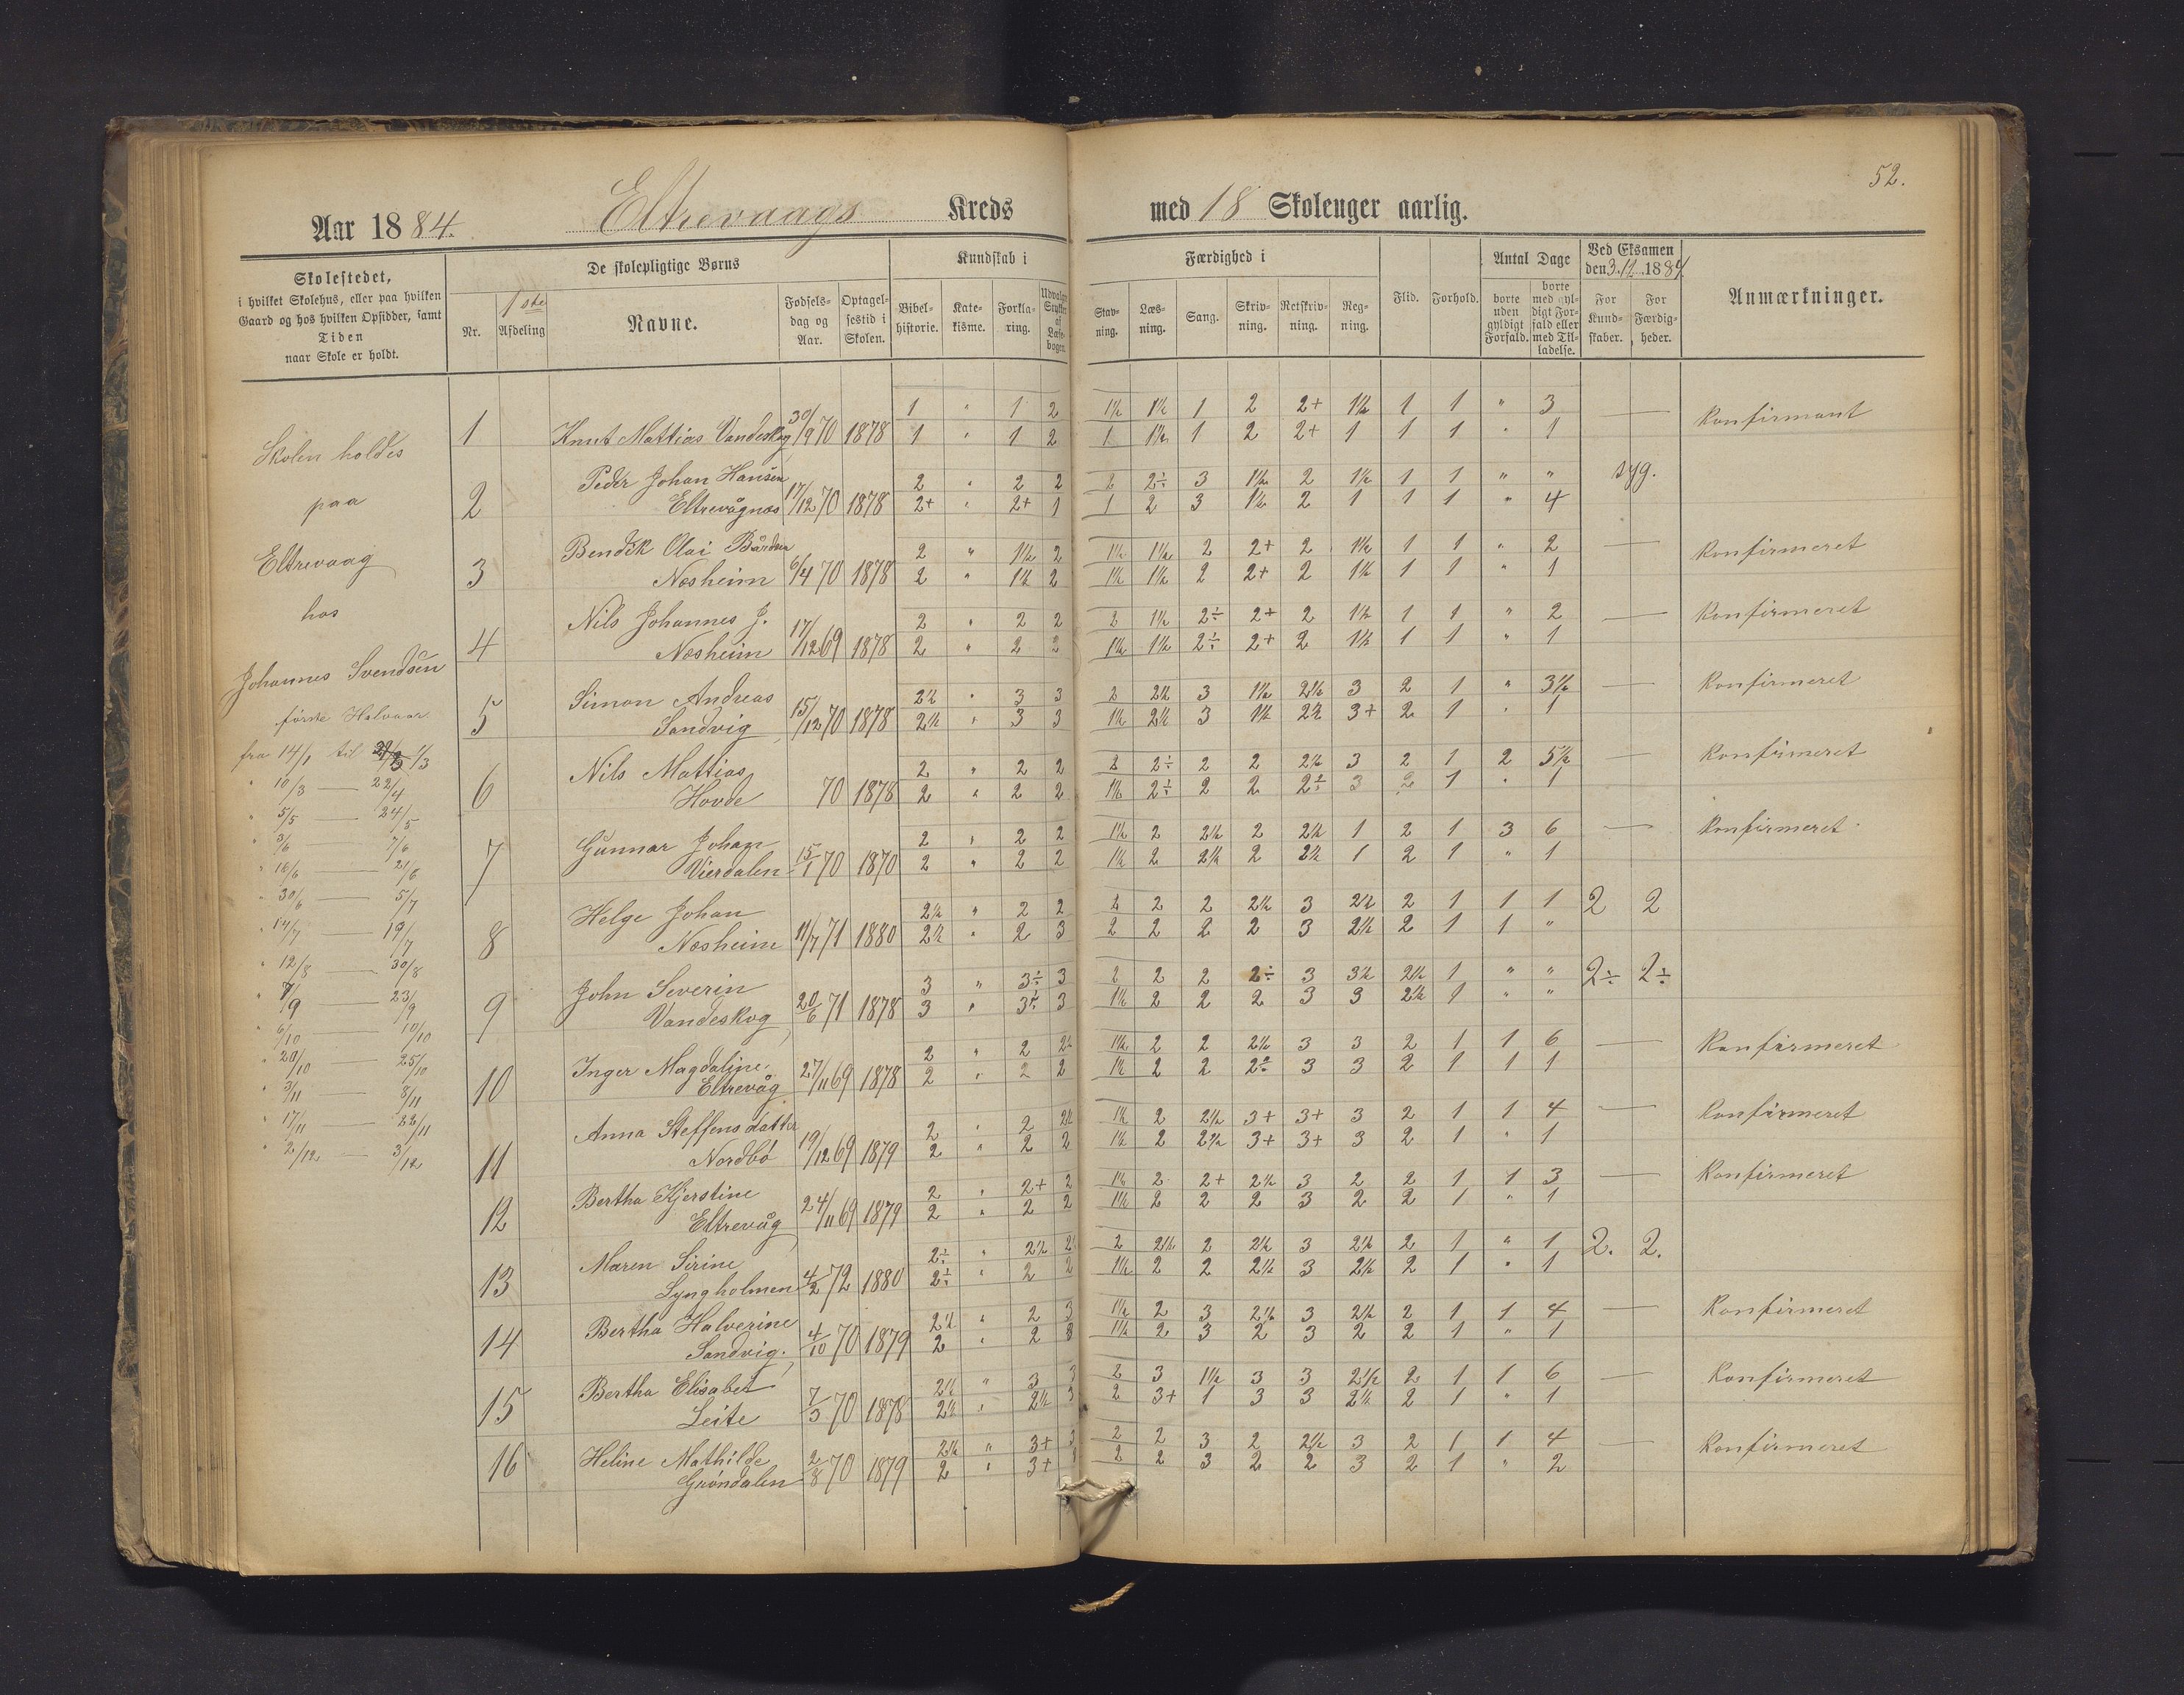 52.
Aar 1884. Eltrevaags Kreds med 18 Skoleuger aarlig.
Skolestedet,
i hvilket Skolehus, eller paa hvilken
Gaard og hos hvilken Opsidder, samt
Tiden
naar Skole er holdt.
De skolepligtige Børns
Nr.
1ste
Afdeling
Navne.
Fødsels-
dag og
Aar.
Optagel-
sestid i
Skolen.
Kundskab i
Bibel-
historie.
Kate-
kisme.
Forkla-
ring.
Udvalgte
Stykker
af
Læse-
bogen.
Færdighed i
Stav-
ning.
Læs-
ning.
Sang.
Skriv-
ning.
Retskriv-
ning.
Reg-
ning.
Flid.
Forhold.
Antal Dage
borte
uden
gyldigt
Forfald.
borte
med gyl-
digt For-
fald eller
med Til-
ladelse.
Ved Eksamen
den 3/12 1884
For
Kund-
skaber.
For
Færdig-
heder.
Anmærkninger.
Skolen holdes
paa
Eltrevaag
hos
Johannes Svendsen
første Halvaar
fra 14/1 til 1/3
" 10/3 — 22/4
" 5/5 — 24/5
" 3/6 — 7/6
" 16/6 — 21/6
" 30/6 — 5/7
" 14/7 — 19/7
" 12/8 — 30/8
" 9/9 — 23/9
" 6/10 — 10/10
" 20/10 — 25/10
" 3/11 — 8/11
" 17/11 — 22/11
" 2/12 — 3/12
1 Knut Mattias Vandeskog 30/9 70 1878 1 " 1 2 1½ 1½ 1 2 2+ 1½ 1 1 " 3 — Konfirmant
1 " 1 2 1 1½ 1 2 2+ 1 1 1 " 1
2 Peder Johan Hansen 2 " 2 2 2 2÷ 3 1½ 2 1½ 1 1 " " syg.
Eltrevågnæs 17/12 70 1878 2+ " 2+ 1 1 2 3 1½ 2 1 1 1 " 4
3 Bendik Olai Bårdsen 2 " 1½ 2 1½ 1½ 2 2+ 2 1½ 1 1 " 2 — Konfirmeret
Nesheim 6/4 70 1878 2 " 1½ 2 1½ 1½ 2 2+ 2 1½ 1 1 " 1
4 Nils Johannes J. 2 " 2 2 2 1½ 2÷ 2+ 2 1½ 1 1 " 2 — Konfirmeret
Nesheim 17/12 69 1878 2 " 2 2 1½ 1½ 2÷ 2+ 2 1½ 1 1 " 1
5 Simon Andreas 2½ " 3 3 2 2½ 3 1½ 2½ 3 2 1 " 3½ — Konfirmeret
Sandvig 15/12 70 1878 2½ " 3 3 1½ 2½ 3 1½ 2½ 3+ 2 1 " 1
6 Nils Mattias 2 " 2 2 2 2÷ 2 2 2½ 3 2 1 2 5½ — Konfirmeret
Hovde 70 1878 2 " 2 2 1½ 2÷ 2 2 2÷ 3 2 1 " 1
7 Gunnar Johan 2 " 2 2 1½ 2 2½ 2 2½ 1 2 1 3 6 — Konfirmeret
Vierdalen 15/1 70 1870 2 " 2 2 1½ 2 2½ 2 2½ 1 2 1 " 1
8 Helge Johan 2½ " 2 2 2 2 2 2½ 3 2½ 2 1 1 1 2 2
Nesheim 11/7 71 1880 2½ " 2 3 2 2 2 2 3 2½ 2 1 1 "
9 John Severin 3 " 3÷ 3 2 2 2 2÷ 3 3½ 2½ 1 " " 2÷ 2÷
Vandeskog 20/6 71 1878 3 " 3÷ 3 1½ 2 2 2 3 3 2½ 1 " "
10 Inger Magdaline 2 " 2 2½ 1½ 2 2 2½ 3 3 2 1 1 6 — Konfirmeret
Eltrevåg 27/11 69 1878 2 " 2 2 1½ 2 2 2÷ 3 3 2 1 1 1
11 Anna Steffensdatter 2 " 2 2½ 1½ 2 2½ 3+ 3+ 3 2 1 1 4 — Konfirmeret
Nordbö 19/12 69 1879 2 " 2 2 1½ 2 2½ 3+ 3+ 3 2 1 " 1
12 Bertha Kjerstine 2 " 2+ 2 1½ 2 2+ 2½ 3 2 2 1 1 3 — Konfirmeret
Eltrevåg 24/11 69 1879 2 " 2 2 1½ 2 2 2 3 2 2 1 " 1
13 Maren Sirine 2÷ " 2½ 2 2 2½ 2 2½ 3 2½ 2 1 " 1 2. 2.
Lyngholmen 4/2 72 1880 2÷ " 2 2 1½ 2 2 2½ 3 2½ 2 1 " 1
14 Bertha Halverine 2½ " 2 3 1½ 2 3 2½ 3 2½ 2 1 1 4 — Konfirmeret
Sandvig. 4/10 70 1879 2 " 2 3 1½ 2 3 2 3 2 2 1 " 1
15 Bertha Elisabet 2½ " 3 3 2 3 1½ 3 3 2½ 2 1 1 6 — Konfirmeret
Leite 7/3 70 1878 2½ " 2½ 3 2 3+ 1 3 3 2½ 2 1 " 1
16 Heline Mathilde 2½ " 3+ 3 2 2 3 2 2½ 3 2 1 1 4 — Konfirmeret
Gröndalen 2/8 70 1879 2 " 3+ 2 2 3 2 2 3 2 1 " 2